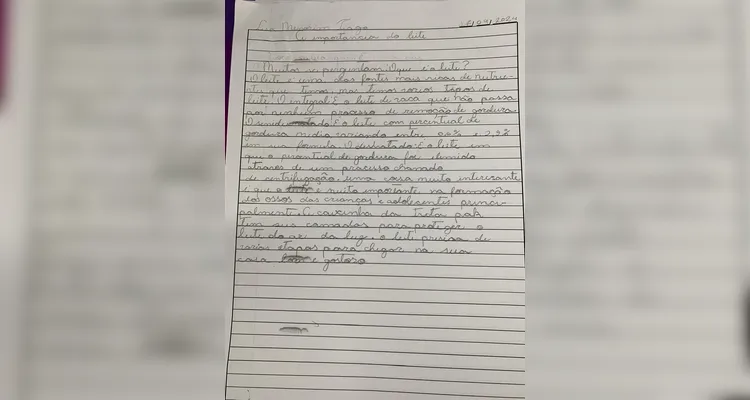 Tiago
18/04/2024
A importância do leite
Muitos se perguntam: O que é o leite?
O leite é uma das fontes mais ricas de nutrie-
nte que temos, mas temos varios tipos de
leite. O integral: É o leite de vaca que não passa
por nenhum processo de remoção de gordura.
O semidesnatado: É o leite com percentual de
gordura média variando entre 0,6% e 2,9%
em sua formula. O desnatado: É o leite em
que o percentual de gordura foi
atraves de um processo chamado
de centrifugação, uma coisa muito interesante
é que o leite é muito importante na formação
dos ossos das crianças e adolecentes princi-
palmente. A caixinha da tretra pak
tem sua camadas para proteger o
leite do ar da luz. o leite precisa de
varias etapas para chegar na sua
casa e gostoso